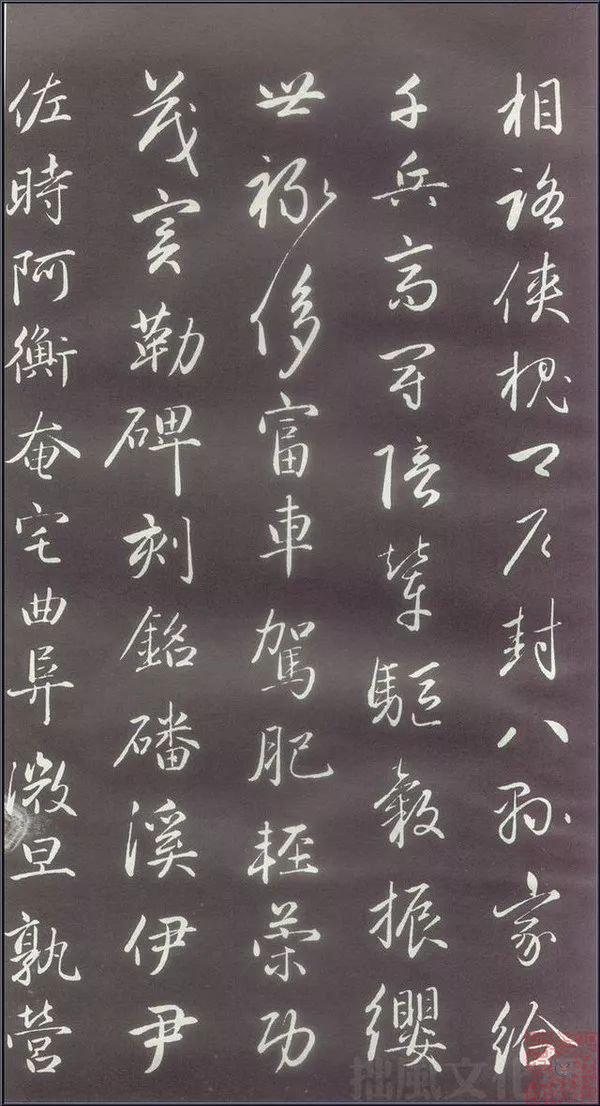 相路俠槐卿戶封八縣家給
千兵高冠陪輦驅轂振纓
世祿侈富車駕肥輕策功
茂實勒碑刻銘磻溪伊尹
佐時阿衡奄宅曲阜微旦孰營
拙風文化